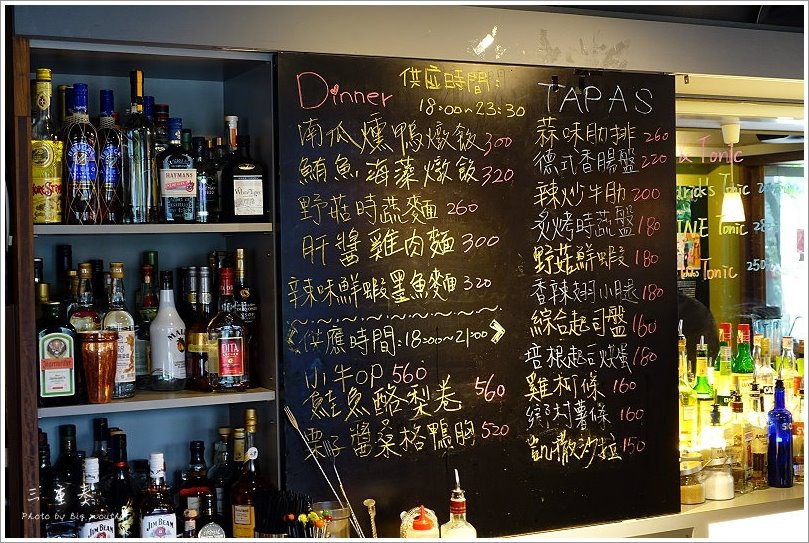 Dinner
供应時間:
18:00~23:30
南瓜燻鴨燉飯 300
鮪魚海藻燉飯 320
野菇時蔬麵 260
肝醬雞肉麵 300
辣味鮮蝦墨魚麵 320
供應時間:18:00~21:00
小牛OP 560
鮭魚酪梨卷 560
栗子醬菜格鴨胸 520
TAPAS
蒜味肋排 260
德式香腸盤 220
辣炒牛肋 200
炙烤時蔬盤 180
野菇鮮蝦 180
香辣翅小腿 180
綜合起司盤 160
培根起司烘蛋 180
雞柳條 160
鄉村薯條 160
凱撒沙拉 150
& Tonic
Tonic
Tonic
Tonic 250
HAYMANS
MALIBU
JIM BEAM
JIM BEAM
Photo by Big mouth